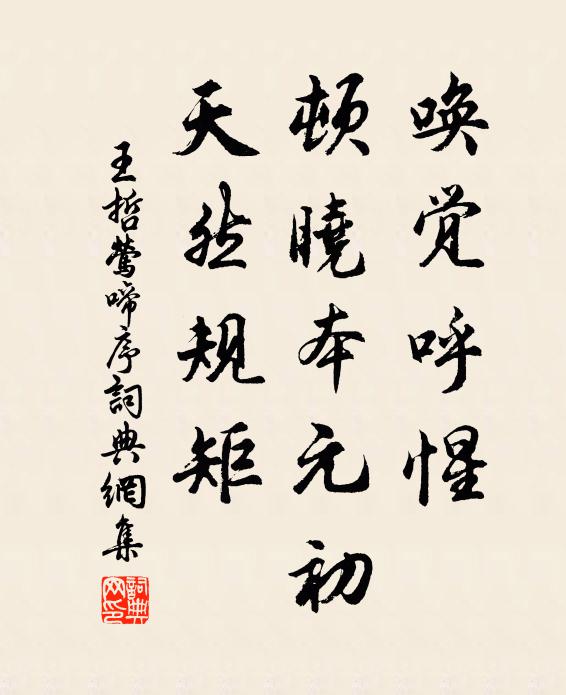 唤觉呼惺
顿晓本元初
天然规矩
王哲莺啼序詞典網集
詞典網印